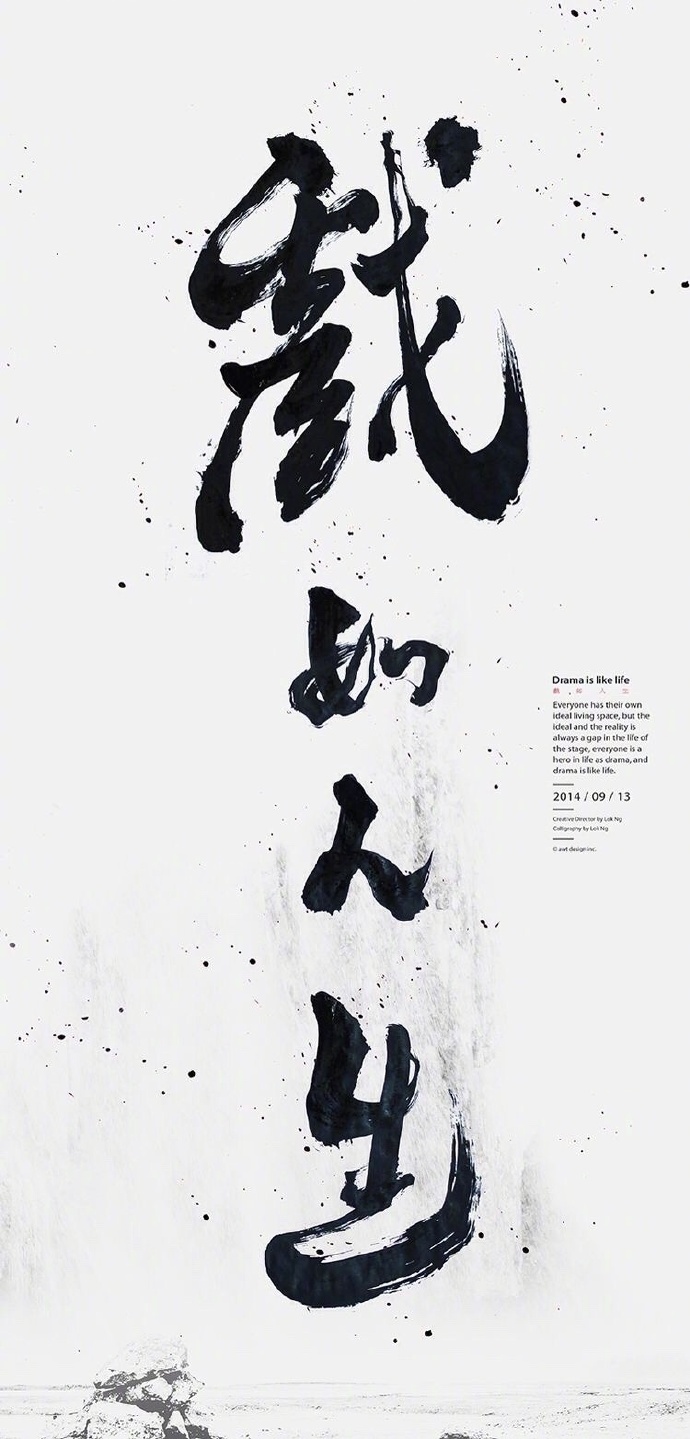 戲
如
人
生
Drama is like life
戲 如 人 生
Everyone has their own
ideal living space, but the
ideal and the reality is
always a gap in the life of
the stage, everyone is a
hero in life as drama, and
drama is like life.
2014 / 09 / 13
Creative Director by Lok Ng
Calligraphy by Lok Ng
© awt design inc.